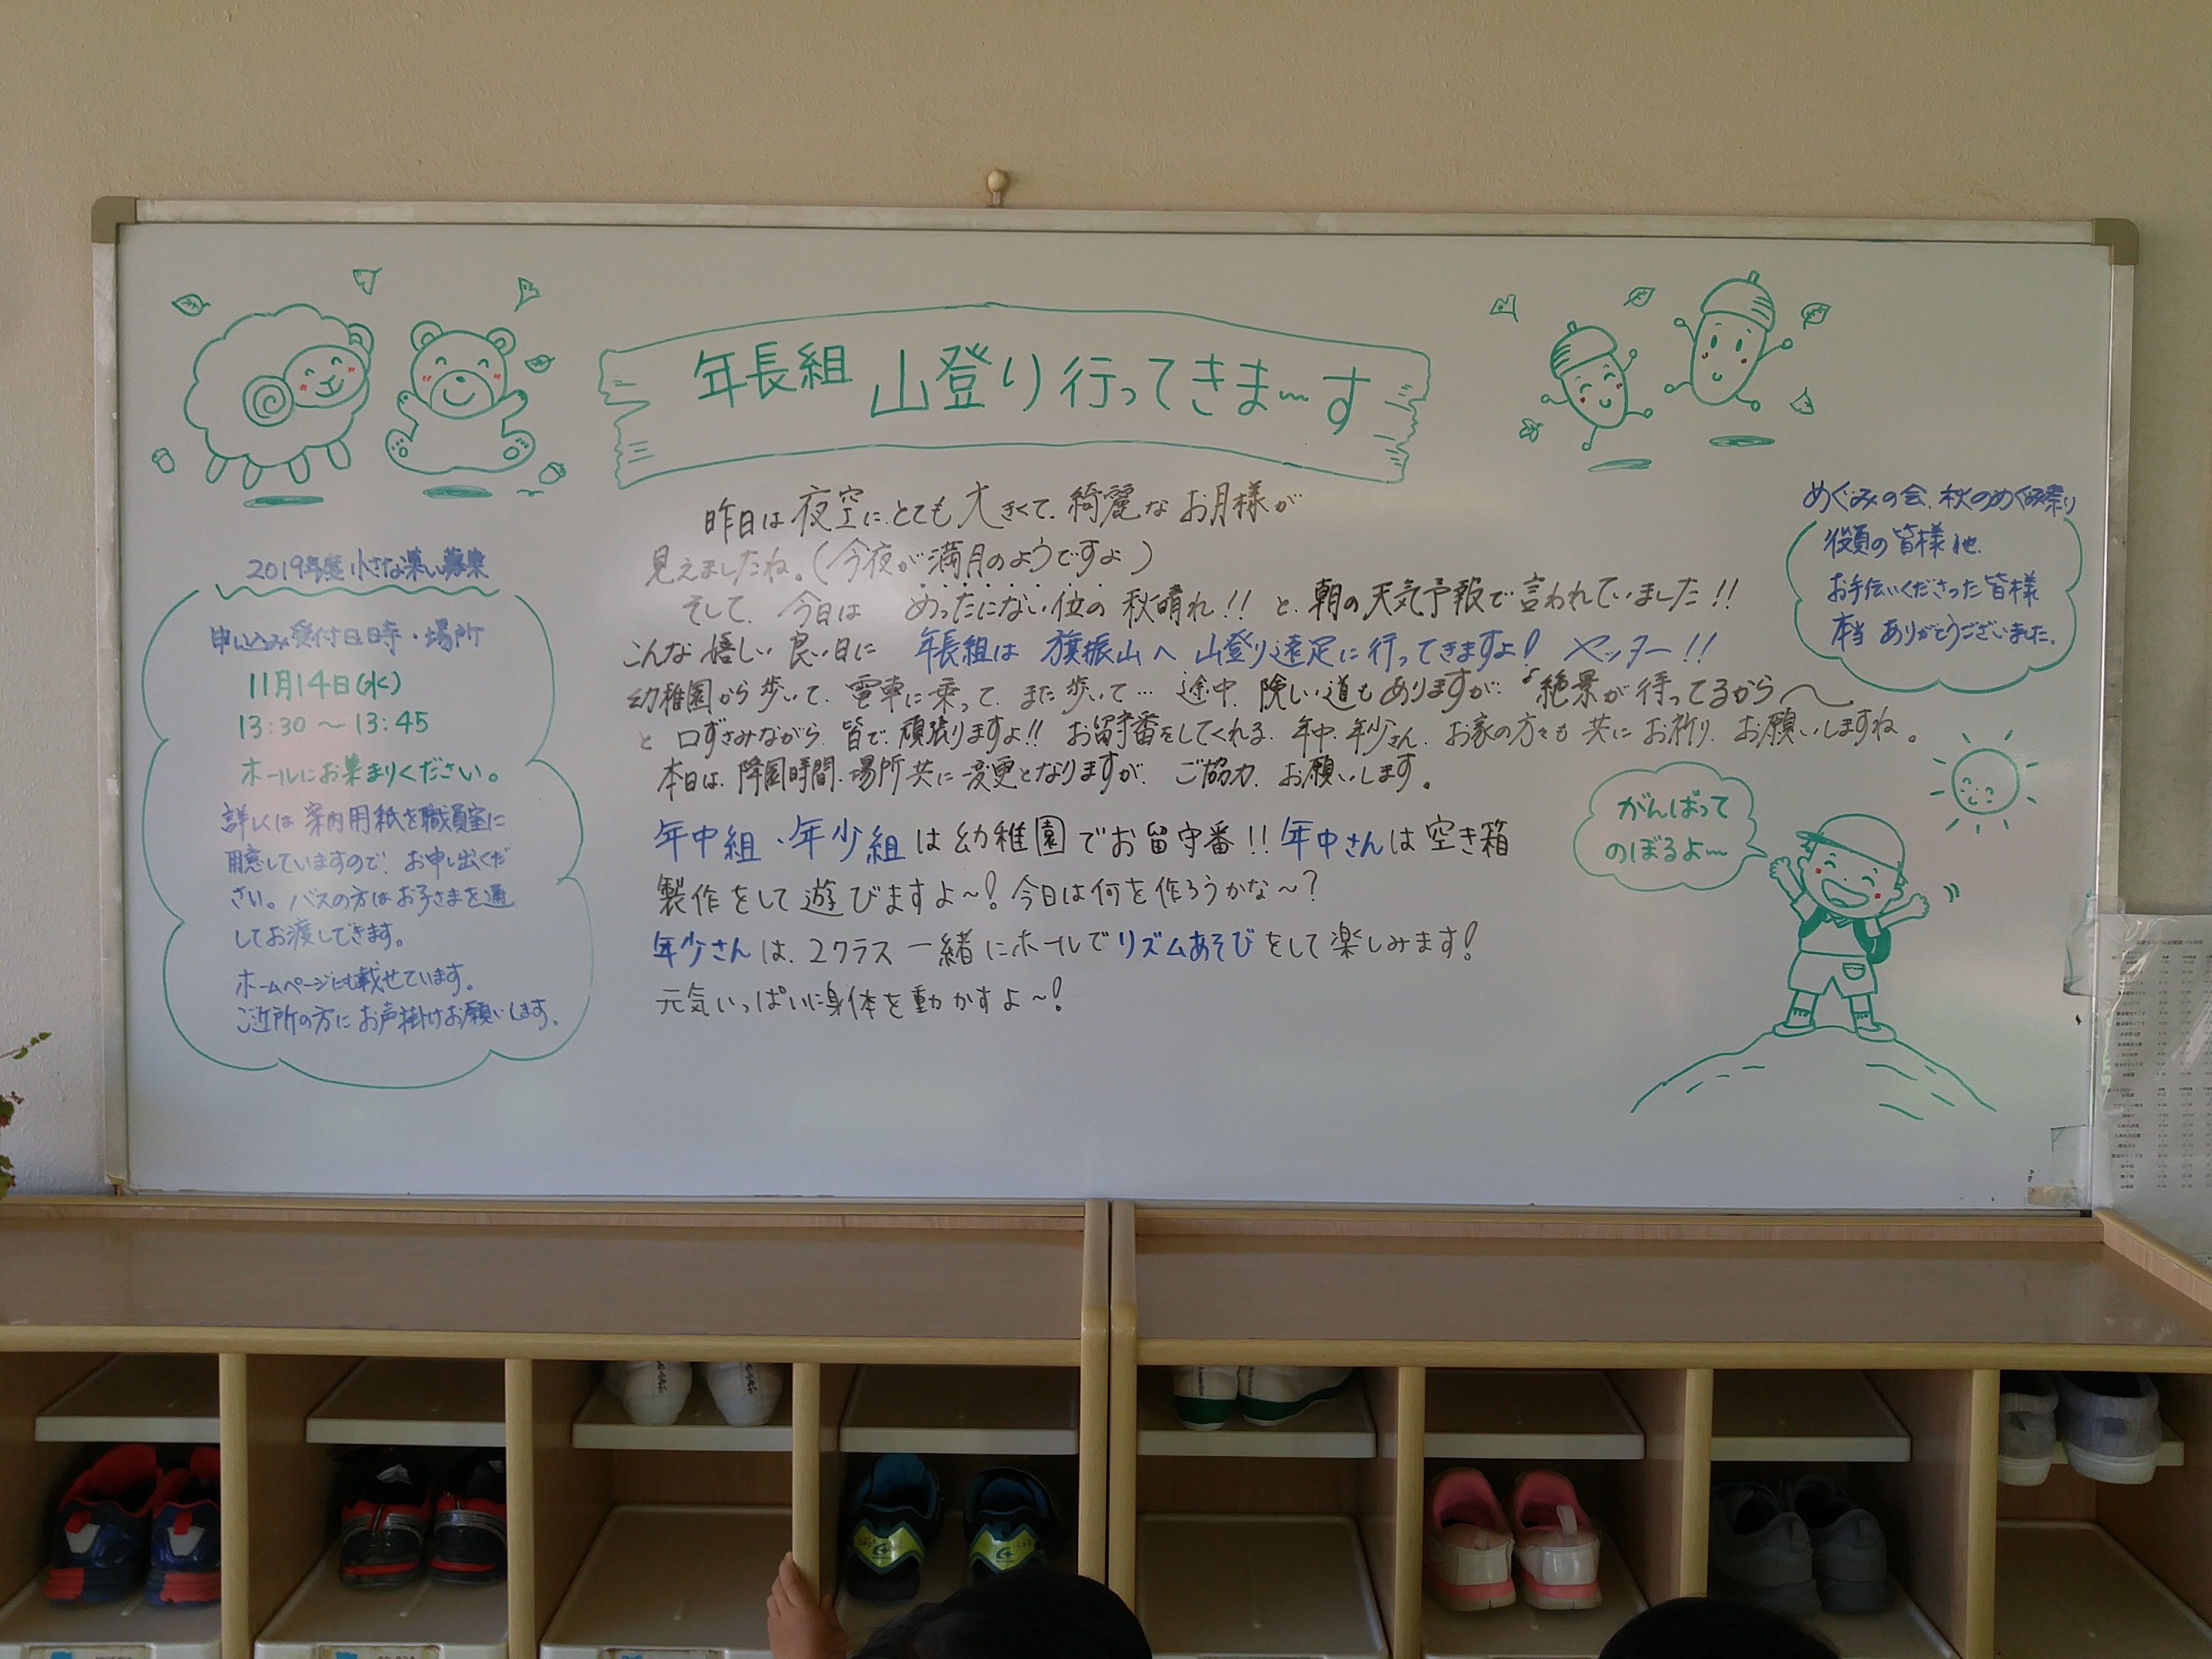 年長組 山登り行ってきま〜す
昨日は夜空にとても大きくて、綺麗なお月様が
見えましたね。(今夜が満月のようですよ)
そして、今日は めったにない位の秋晴れ!! と、朝の天気予報で言われていました!!
こんな嬉しい良い日に 年長組は 旗振山へ 山登り遠足に行ってきますよ! ヤッター!!
幼稚園から歩いて、電車に乗って、また歩いて… 途中、険しい道もありますが…♪絶景が待ってるから〜
と 口ずさみながら、皆で、頑張りますよ!! お留守番をしてくれる、年中、年少さん、お家の方々も 共に お祈り、お願いしますね。
本日は、降園時間、場所共に変更となりますが、ご協力、お願いします。
年中組、年少組は幼稚園でお留守番!! 年中さんは空き箱
製作をして遊びますよ〜! 今日は何を作ろうかな〜?
年少さんは、2クラス一緒にホールでリズムあそびをして楽しみます!
元気いっぱいに身体を動かすよ〜!
2019年度 小さな集い募集
申し込み受付日時・場所
11月14日(水)
13:30〜13:45
ホールにお集まりください。
詳しくは案内用紙を職員室に
用意していますので、お申し出くだ
さい。バスの方はお子さまを通
してお渡しできます。
ホームページにも載せています。
ご近所の方にお声掛けお願いします。
めぐみの会、秋のめぐみ祭り
役員の皆様他、
お手伝いくださった皆様
本当 ありがとうございました。
がんばって
のぼるよ〜